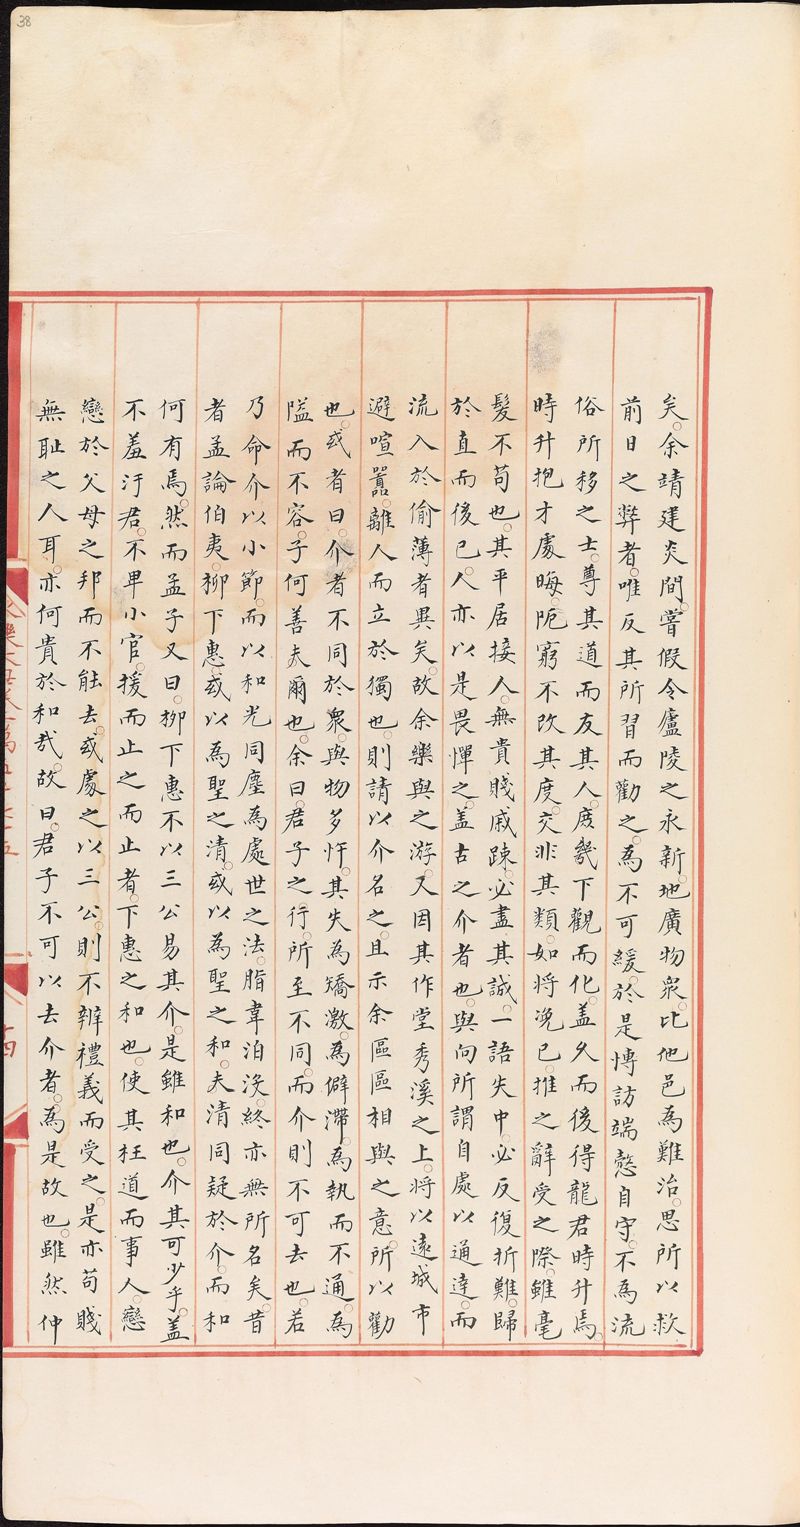 矣。余靖建炎間。嘗假令廬陵之永新。地廣物衆。比他邑為難治。思所以救
前日之弊者。唯反其所習而勸之。為不可緩。於是慱訪端慤自守。不為流
俗所移之士。尊其道而友其人。庶幾下觀而化。盖久而後得龍君時升焉。
時升抱才處晦。阨窮不改其度。交非其類。如將浼已。推之辭受之際。雖毫
髮不苟也。其平居接人。無貴賤戚踈。必盡其誠。一語失中。必反復折難。歸
於直而後已。人亦以是畏憚之。盖古之介者也。與向所謂自處以通達。而
流入於偷薄者異矣。故余樂與之游。又因其作堂秀溪之上。將以遠城市
避喧囂。離人而立於獨也。則請以介名之。且示余區區相與之意。所以勸
也。或者曰。介者不同於衆。與物多忤。其失為矯激。為僻滯。為執而不通。為
隘而不容。子何善夫爾也。余曰。君子之行。所至不同。而介則不可去也。若
乃命介以小節。而以和光同塵為處世之法。脂韋泊没。終亦無所名矣。昔
者孟論伯夷。栁下惠。或以為聖之清。或以為聖之和。夫清同疑於介。而和
何有焉。然而孟子又曰。栁下惠不以三公易其介。是雖和也。介其可少乎。盖
不羞汙君。不卑小官。援而止之而止者。下惠之和也。使其枉道而事人。戀
戀於父母之邦而不能去。或處之以三公。則不辨禮義而受之。是亦苟賤
無耻之人耳。亦何貴於和㢤。故曰。君子不可以去介者。為是故也。雖然仲